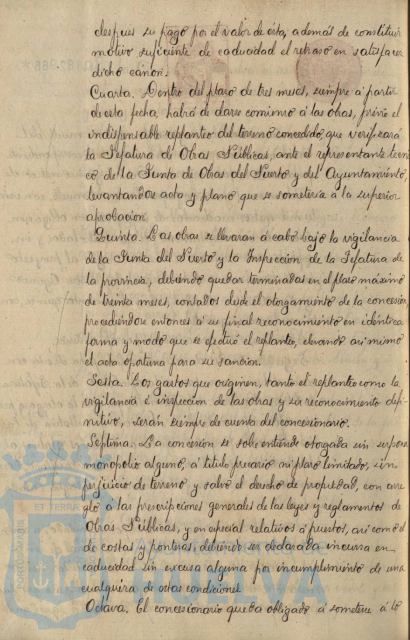 despues su pago por el valor de esta, además de constituir
motivo suficiente de caducidad el retraso en satisfacer
dicho canon.
Cuarta. Dentro del plazo de tres meses, siempre á partir
de esta fecha, habrá de darse comienzo á las obras, previo el
indispensable replanteo del terreno concedido que verificará
la Jefatura de Obras Públicas, ante el representante técni
co de la Junta de Obras del Puerto y del Ayuntamiento,
levantandose acta y plano que se someteria á la superior
aprobacion.
Quinta. Las obras se llevaran á cabo bajo la vigilancia
de la Junta del Puerto y la Inspeccion de la Jefatura de
la provincia, debiendo quedar terminadas en el plazo máximo
de treinta meses, contados desde el otorgamiento de la concesion,
procediendose entonces á su final reconocimiento en identica
forma y modo que se efectuó el replanteo, elevando asi mismo
el acta oportuna para su sancion.
Sesta. Los gastos que originen, tanto el replanteo como la
vigilancia é inspeccion de las obras y su reconocimiento defi-
nitivo, serán siempre de cuenta del concesionario.
Septima. La concesion se sobreentiende otorgada sin
monopolio alguno, á titulo precario ni plazo limitado, sin
perjuicio de tercero y salvo el derecho de propiedad, con arre
glo á las prescripciones generales de las leyes y reglamentos de
Obras Públicas, y en especial relativos á puertos, asi como el
de costas y fronteras, debiendo ser declarada incursa en
caducidad sin excusa alguna por incumplimiento de una
cualquiera de estas condiciones
Octava. El concesionario queda obligado á someterse á lo
ET TERRAE
HUELVA